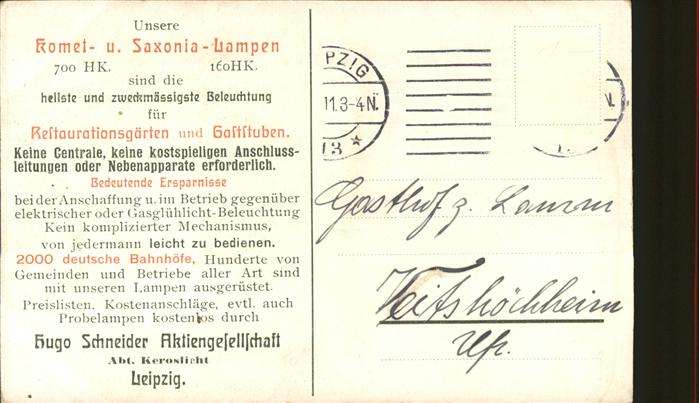 Unsere
Komet- u. Saxonia-Lampen
700 HK. 160HK.
sind die
hellste und zweckmässigste Beleuchtung
für
Restaurationsgärten und Gaststuben.
Keine Centrale, keine kostspieligen Anschluss-
leitungen oder Nebenapparate erforderlich.
Bedeutende Ersparnisse
bei der Anschaffung u. im Betrieb gegenüber
elektrischer oder Gasglühlicht-Beleuchtung
Kein komplizierter Mechanismus,
von jedermann leicht zu bedienen.
2000 deutsche Bahnhöfe, Hunderte von
Gemeinden und Betriebe aller Art sind
mit unseren Lampen ausgerüstet.
Preislisten, Kostenanschläge, evtl. auch
Probelampen kostenlos durch
Hugo Schneider Aktiengesellschaft
Abt. Keroslicht
Leipzig.
PZIG
11.3-4N.
13 *
Gasthof z.
Veitshöchheim